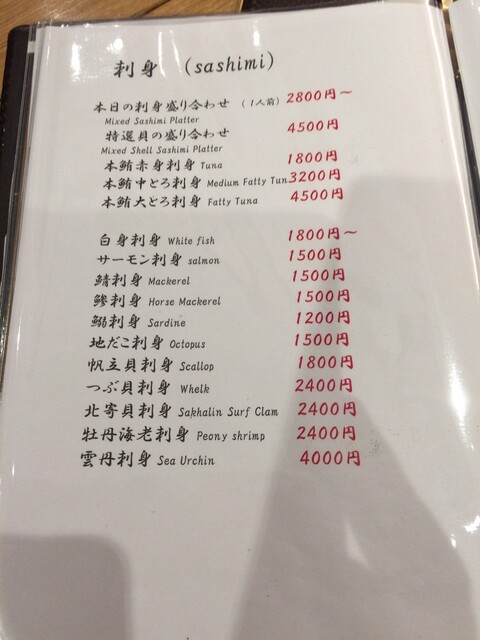 刺身 (sashimi)
本日の刺身盛り合わせ (1人前) 2800円~
Mixed Sashimi Platter
特選貝の盛り合わせ 4500円
Mixed Shell Sashimi Platter
本鮪赤身刺身 Tuna 1800円
本鮪中とろ刺身 Medium Fatty Tun 3200円
本鮪大とろ刺身 Fatty Tuna 4500円
白身刺身 White fish 1800円~
サーモン刺身 salmon 1500円
鯖刺身 Mackerel 1500円
鯵刺身 Horse Mackerel 1500円
鰯刺身 Sardine 1200円
地だこ刺身 Octopus 1500円
帆立貝刺身 Scallop 1800円
つぶ貝刺身 Whelk 2400円
北寄貝刺身 Sakhalin Surf Clam 2400円
牡丹海老刺身 Peony shrimp 2400円
雲丹刺身 Sea Urchin 4000円